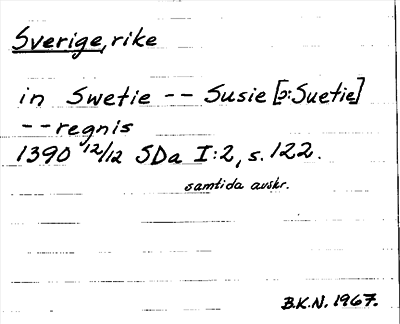 Sverige, rike
in Swetie -- Susie [ɔ: Suetie]
-- regnis
1390 12/12 SDa I:2, s. 122.
samtida avskr.
B.K.N. 1967.